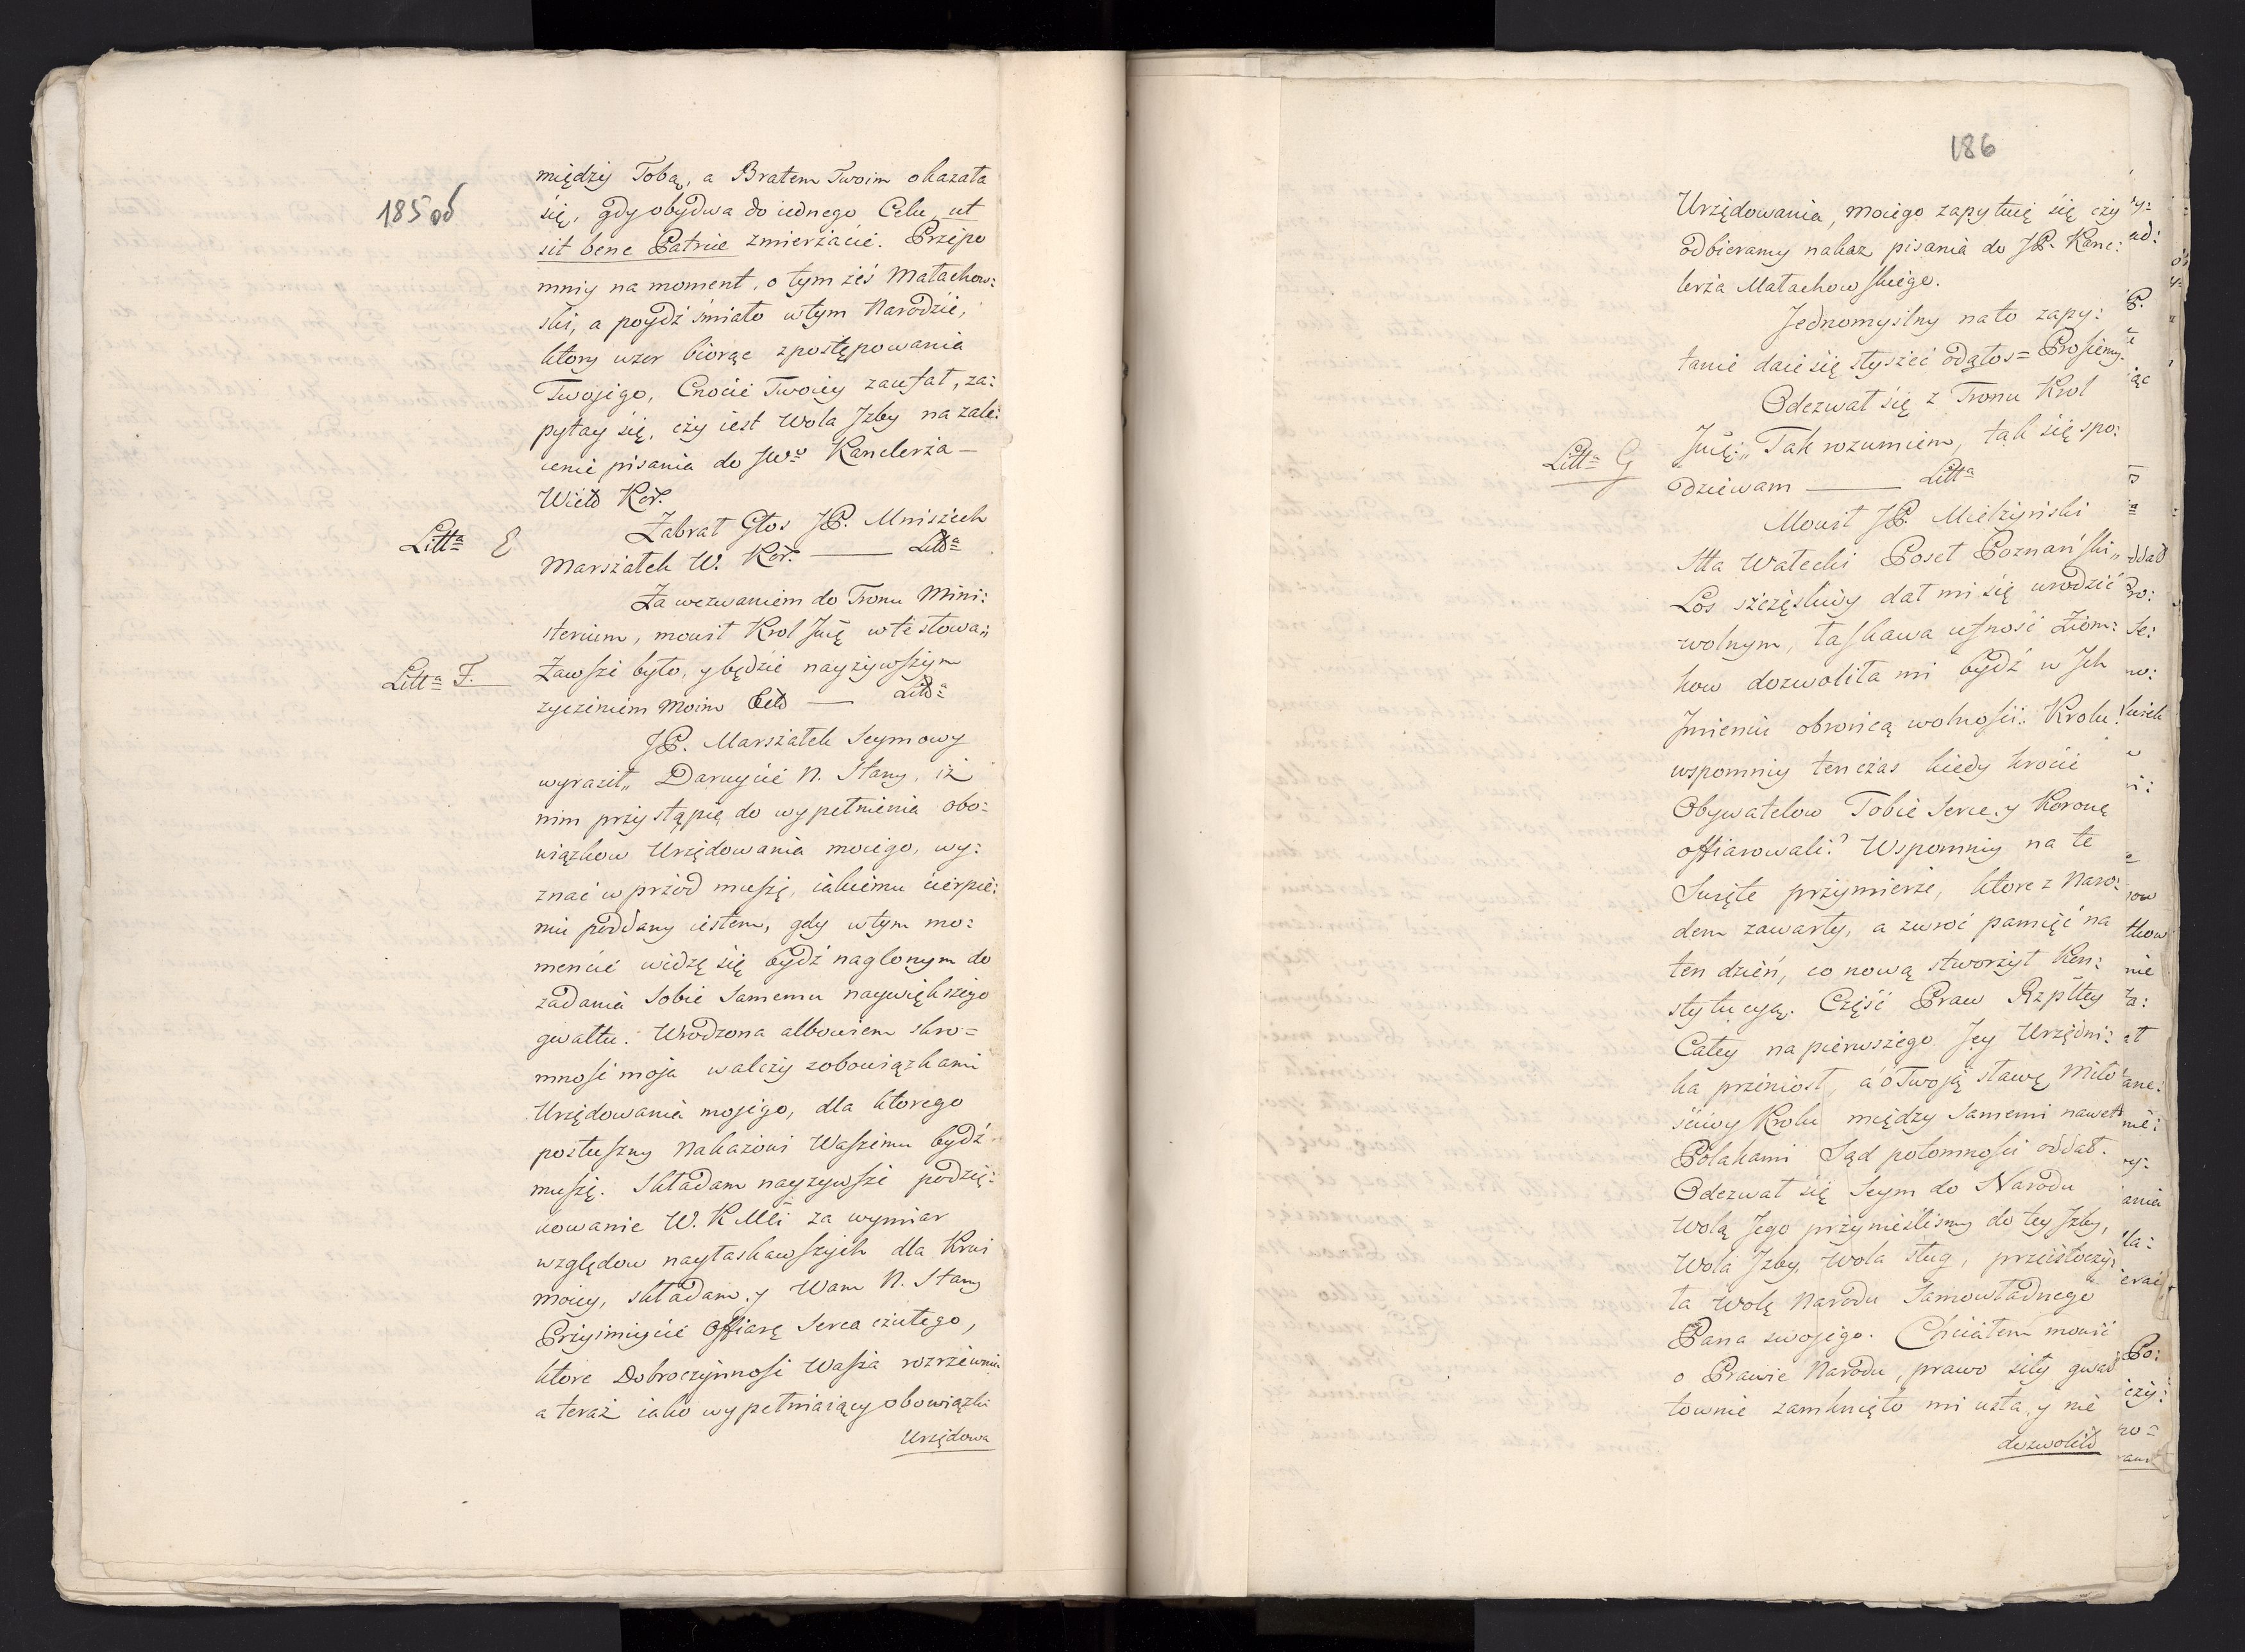 185 об
między Tobą, a Bratem Twoim okazała
się, gdy obydwa do iednego Celu, ut
sit bene Patriæ zmierzacie. Przepo
mniy na moment, o tym żeś Małachow:
ski, a poydź śmiało w tym Narodzie,
ktory wzor biorąc z postępowania
Twojego, Cnocie Twoiey zaufał, za:
pytay się, czy iest Wola Izby na zale:
cenie pisania do JWo Kanclerza —
Wielo Kor.
Litta E
Zabrał Głos JP. Mniszech
Marszałek W. Kor. — Litta
Za wezwaniem do Tronu Mini:
sterium, mowił Krol Jmć w te słowa„
Litta F.
Zawsze było, y będzie nayżywszym
życzeniem moim — Litta
JP. Marszałek Seymowy
wyraził„ Daruycie N. Stany, iż
nim przystąpię do wypełnienia obo:
wiązkow Urzędowania moiego, wy:
znać w przod muszę, iakiemu cierpie:
niu poddany iestem, gdy w tym mo:
mencie widzę się bydź naglonym do
zadania Sobie Samemu naywiększego
gwałtu. Wrodzona albowiem skro=
mność moja walczy z obowiązkami
Urzędowania mojego, dla ktorego
posłuszny Nakazowi Waszemu bydź
muszę. Składam nayżywsze podzię:
kowanie W. K Mći za wymiar
względow nayłaskawszych dla Krwi
moiey, składam y Wam N. Stany
Przyimiycie Offiarę Serca czułego,
ktore Dobroczynność Wasza rozrzewnia
a teraz iako wypełniaiący obowiązki
Urzędowa
186
Urzędowania, moiego zapytuię się czy
odbieramy nakaz pisania do JP. Kanc:
lerza Małachowskiego.
Jednomyslny na to zapy:
tanie daie się słyszeć odgłos = Prosiemy.
Odezwał się z Tronu Krol
Jmć„ Tak rozumiem, tak się spo:
Litta G
dziewam — Litta
Mowił JP. Mielżyński
Stta Wałecki Poseł Poznański„
Los szczęśliwy dał mi się urodzić
wolnym, łaskawa ufność Ziom:
kow dozwoliła mi bydź w Ich
Imieniu obrońcą wolności. Krolu!
wspomniy ten czas kiedy krocie
Obywatelow Tobie Serce y Koronę
offiarowali? Wspomniy na te
Swięte przymierze, ktore z Naro:
dem zawarty, a zwroć pamięć na
ten dzień, co nową stworzył Kon:
stytucyą. Część Praw Rzpltey
Całey na pierwszego Jey Urzędni:
ka przeniosł, a o Twoją sławę Miło
ściwy Krolu między Samemi nawet
Polakami Sąd potomności oddał.
Odezwał się Seym do Narodu
Wolą Jego przynieślismy do tey Izby,
Wola Izby, Wola sług, przeistoczy:
ła Wolę Narodu Samowładnego
Pana swojego. Chciałem mowić
o Prawie Narodu, prawo siły gwał
townie zamknięto mi usta, y nie
dozwolił